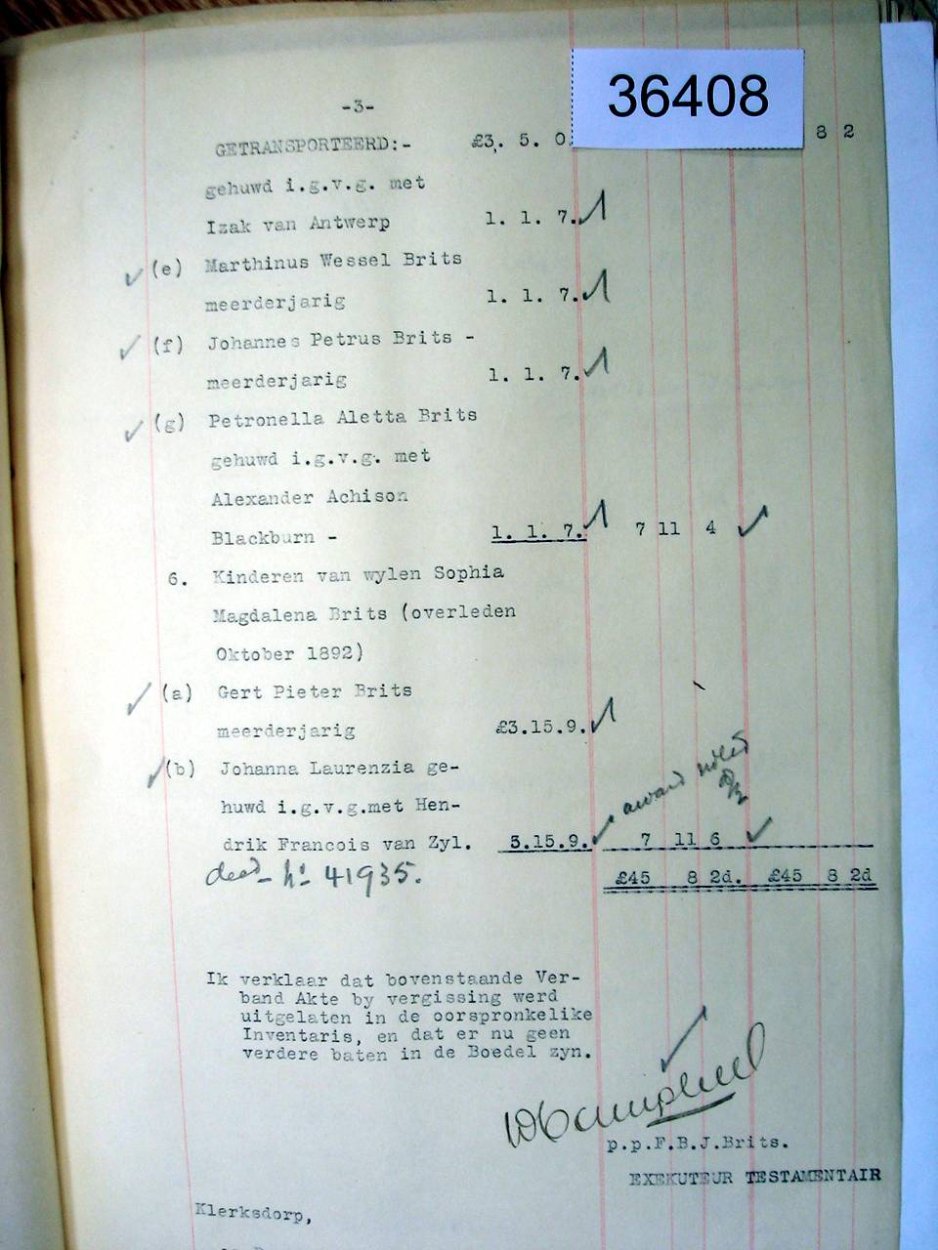 36408
-3-
GETRANSPORTEERD:- £3. 5. 0. 8 2
gehuwd i.g.v.g. met
Izak van Antwerp 1. 1. 7.
(e) Marthinus Wessel Brits
meerderjarig 1. 1. 7.
(f) Johannes Petrus Brits -
meerderjarig 1. 1. 7.
(g) Petronella Aletta Brits
gehuwd i.g.v.g. met
Alexander Achison
Blackburn - 1. 1. 7. 7 11 4
6. Kinderen van wylen Sophia
Magdalena Brits (overleden
Oktober 1892)
(a) Gert Pieter Brits
meerderjarig £3.15.9.
(b) Johanna Laurenzia ge-
huwd i.g.v.g.met Hen-
drik Francois van Zyl. 3.15.9. 7 11 6
award noted
deed No 41935.
£45 8 2d. £45 8 2d
Ik verklaar dat bovenstaande Ver-
band Akte by vergissing werd
uitgelaten in de oorspronkelike
Inventaris, en dat er nu geen
verdere baten in de Boedel zyn.
Campbell
p.p.F.B.J.Brits.
EXEKUTEUR TESTAMENTAIR
Klerksdorp,